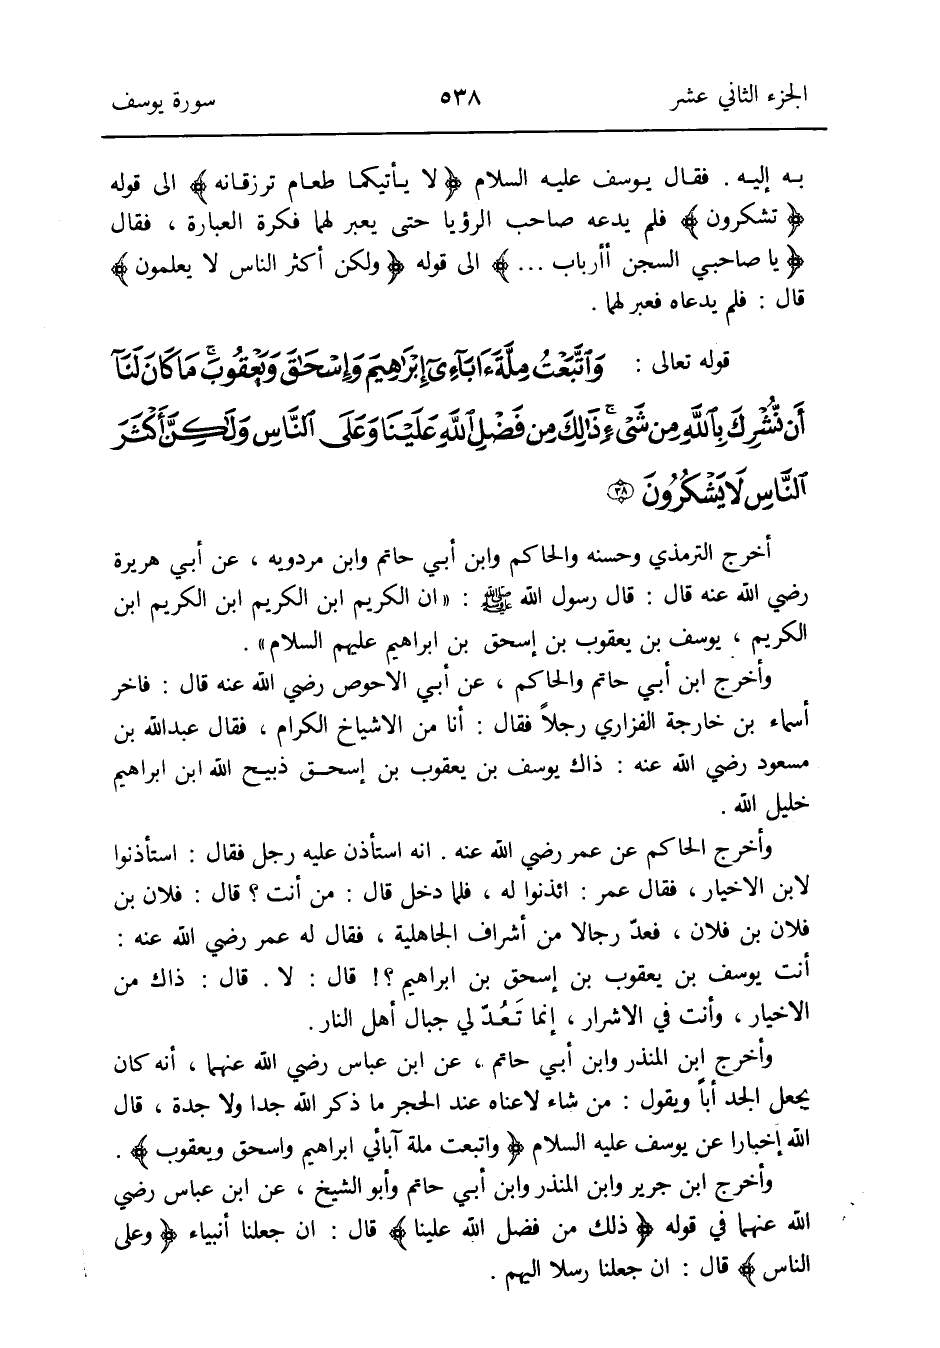 الجزء الثاني عشر ٥٣٨ سورة يوسف
به إليه . فقال يوسف عليه السلام ﴿ لا يأتيكما طعام ترزقانه ﴾ الى قوله
﴿ تشكرون ﴾ فلم يدعه صاحب الرؤيا حتى يعبر لهما فكرة العبارة ، فقال
﴿ يا صاحبي السجن أأرباب ... ﴾ الى قوله ﴿ ولكن أكثر الناس لا يعلمون ﴾
قال : فلم يدعاه فعبر لهما .
قوله تعالى : وَٱتَّبَعۡتُ مِلَّةَ ءَابَآءِىٓ إِبۡرَٰهِيمَ وَإِسۡحَٰقَ وَيَعۡقُوبَۚ مَا كَانَ لَنَآ
أَن نُّشۡرِكَ بِٱللَّهِ مِن شَىۡءٖۚ ذَٰلِكَ مِن فَضۡلِ ٱللَّهِ عَلَيۡنَا وَعَلَى ٱلنَّاسِ وَلَٰكِنَّ أَكۡثَرَ
ٱلنَّاسِ لَا يَشۡكُرُونَ ٣٨
أخرج الترمذي وحسنه والحاكم وابن أبي حاتم وابن مردويه ، عن أبي هريرة
رضي الله عنه قال : قال رسول الله ﷺ : «ان الكريم ابن الكريم ابن الكريم ابن
الكريم ، يوسف بن يعقوب بن إسحق بن ابراهيم عليهم السلام» .
وأخرج ابن أبي حاتم والحاكم ، عن أبي الاحوص رضي الله عنه قال : فاخر
أسماء بن خارجة الفزاري رجلاً فقال : أنا من الاشياخ الكرام ، فقال عبدالله بن
مسعود رضي الله عنه : ذاك يوسف بن يعقوب بن إسحق ذبيح الله ابن ابراهيم
خليل الله .
وأخرج الحاكم عن عمر رضي الله عنه . انه استأذن عليه رجل فقال : استأذنوا
لابن الاخيار ، فقال عمر : ائذنوا له ، فلما دخل قال : من أنت ؟ قال : فلان بن
فلان بن فلان ، فعدّ رجالا من أشراف الجاهلية ، فقال له عمر رضي الله عنه :
أنت يوسف بن يعقوب بن إسحق بن ابراهيم ؟! قال : لا . قال : ذاك من
الاخيار ، وأنت في الاشرار ، إنما تَعُدّ لي جبال أهل النار .
وأخرج ابن المنذر وابن أبي حاتم ، عن ابن عباس رضي الله عنهما ، أنه كان
يجعل الجد أباً ويقول : من شاء لاعناه عند الحجر ما ذكر الله جدا ولا جدة ، قال
الله إخبارا عن يوسف عليه السلام ﴿ واتبعت ملة آبائي ابراهيم واسحق ويعقوب ﴾ .
وأخرج ابن جرير وابن المنذر وابن أبي حاتم وأبو الشيخ ، عن ابن عباس رضي
الله عنهما في قوله ﴿ ذلك من فضل الله علينا ﴾ قال : ان جعلنا أنبياء ﴿ وعلى
الناس ﴾ قال : ان جعلنا رسلا اليهم .